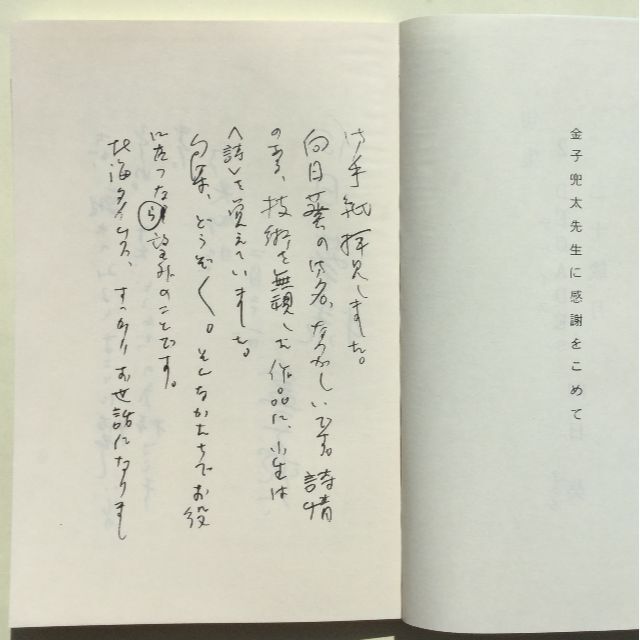 金子兜太先生に感謝をこめて
御手紙拝見しました。
向日葵の御名、なつかしいです。詩情
のある、技術を無視した作品に、小生は
〈詩〉を覚えていました。
句集、どうぞ〱。そんなかたちでお役
に立つなら望外のことです。
北海タイムス、すっかりお世話になりまし